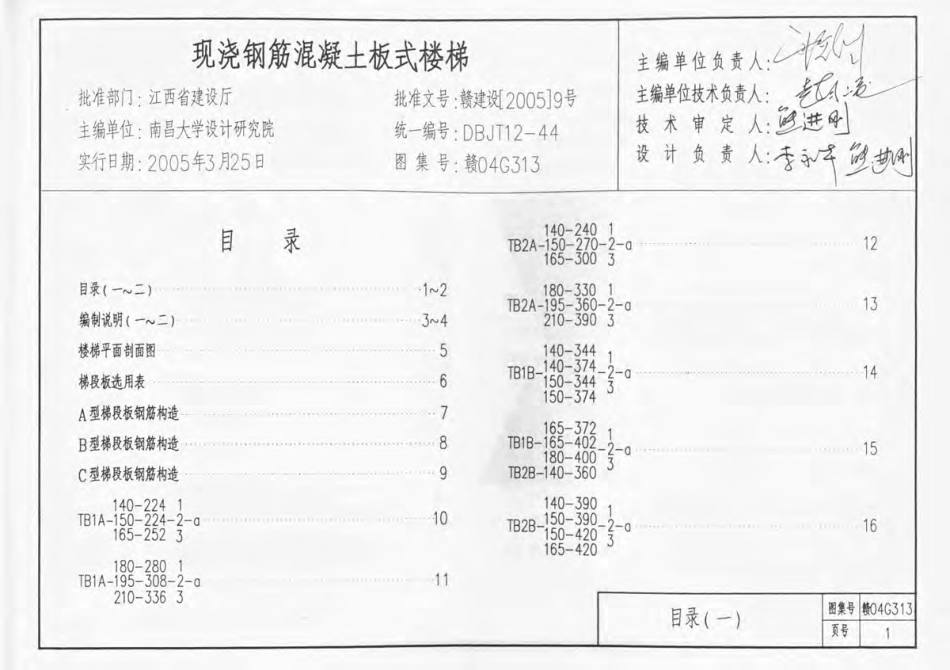 现浇钢筋混凝土板式楼梯
批准部门: 江西省建设厅
批准文号: 赣建设[2005]9号
主编单位: 南昌大学设计研究院
统一编号: DBJT12-44
实行日期: 2005年3月25日
图集号: 赣04G313
主编单位负责人:
主编单位技术负责人:
技术审定人: 熊进刚
设计负责人: 李永华 熊进刚
目 录
目录(一~二) 1~2
编制说明(一~二) 3~4
楼梯平面剖面图 5
梯段板选用表 6
A型梯段板钢筋构造 7
B型梯段板钢筋构造 8
C型梯段板钢筋构造 9
140-224 1
TB1A-150-224-2-a 10
165-252 3
180-280 1
TB1A-195-308-2-a 11
210-336 3
140-240 1
TB2A-150-270-2-a 12
165-300 3
180-330 1
TB2A-195-360-2-a 13
210-390 3
140-344
140-374 1
TB1B- -2-a 14
150-344 3
150-374
165-372
TB1B-165-402 1
180-400 -2-a 15
TB2B-140-360 3
140-390
150-390 1
TB2B- -2-a 16
150-420 3
165-420
目录(一)
图集号 赣04G313
页号 1